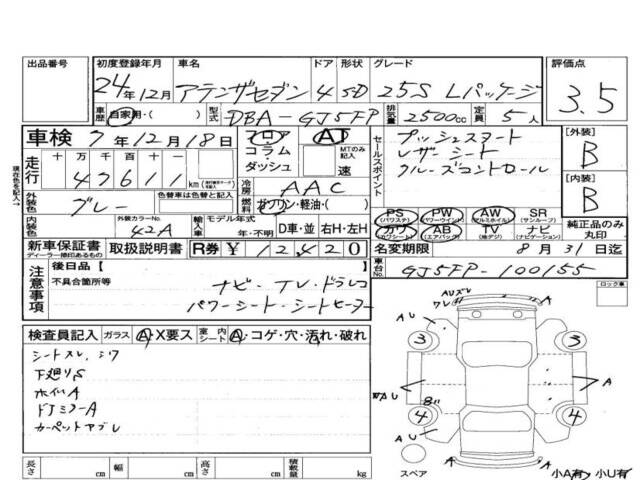 出品番号 初度登録年月 車名 ドア 形状 グレード 評価点
24年12月 アテンザセダン 4 SD 25S Lパッケージ 3.5
車歴 自家用・( ) 型式 DBA-GJ5FP 排気量 2500cc 定員 5人
車検 7年12月18日 フロア AT
コラム MTのみ記入
ダッシュ 速
セールスポイント
プッシュスタート
レザーシート
クルーズコントロール
[外装] B
[内装] B
走行 十万千百十一
47611 km
冷房 AAC
外装色 グレー 色替車は色替と記入
燃料 ガソリン・軽油・( )
内装色 外装カラーNo. 42A
輸入車 モデル年式 年・不明 D車・並 右H・左H
PS (パワステ) PW (パワーウインド) AW (アルミホイル) SR (サンルーフ)
カワ AB (エアバック) TV (地デジ) ナビ (ナビゲーション)
純正品のみ丸印
新車保証書 取扱説明書 R券 ¥12,420
名変期限 8月31日迄
車台No. GJ5FP-100155
注意事項
後日品【 】
不具合箇所等
ナビ・TV・ドラレコ
パワーシート・シートヒーター
ロック車
検査員記入 ガラス A・X要ス 室内シート A・コゲ・穴・汚れ・破れ
シートスレ、シワ
下廻りS
ホイルA
ドアミラーA
カーペットヤブレ
AU
3 3
A
4 4
AU
A
スペア
小A有 小U有
長さ cm 幅 cm 高さ cm 積載量 kg
現在色を記入→